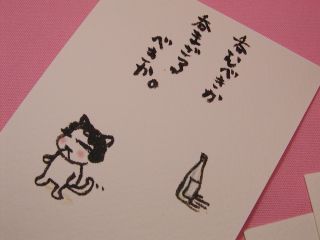 呑むべきか
呑まざる
べきか。